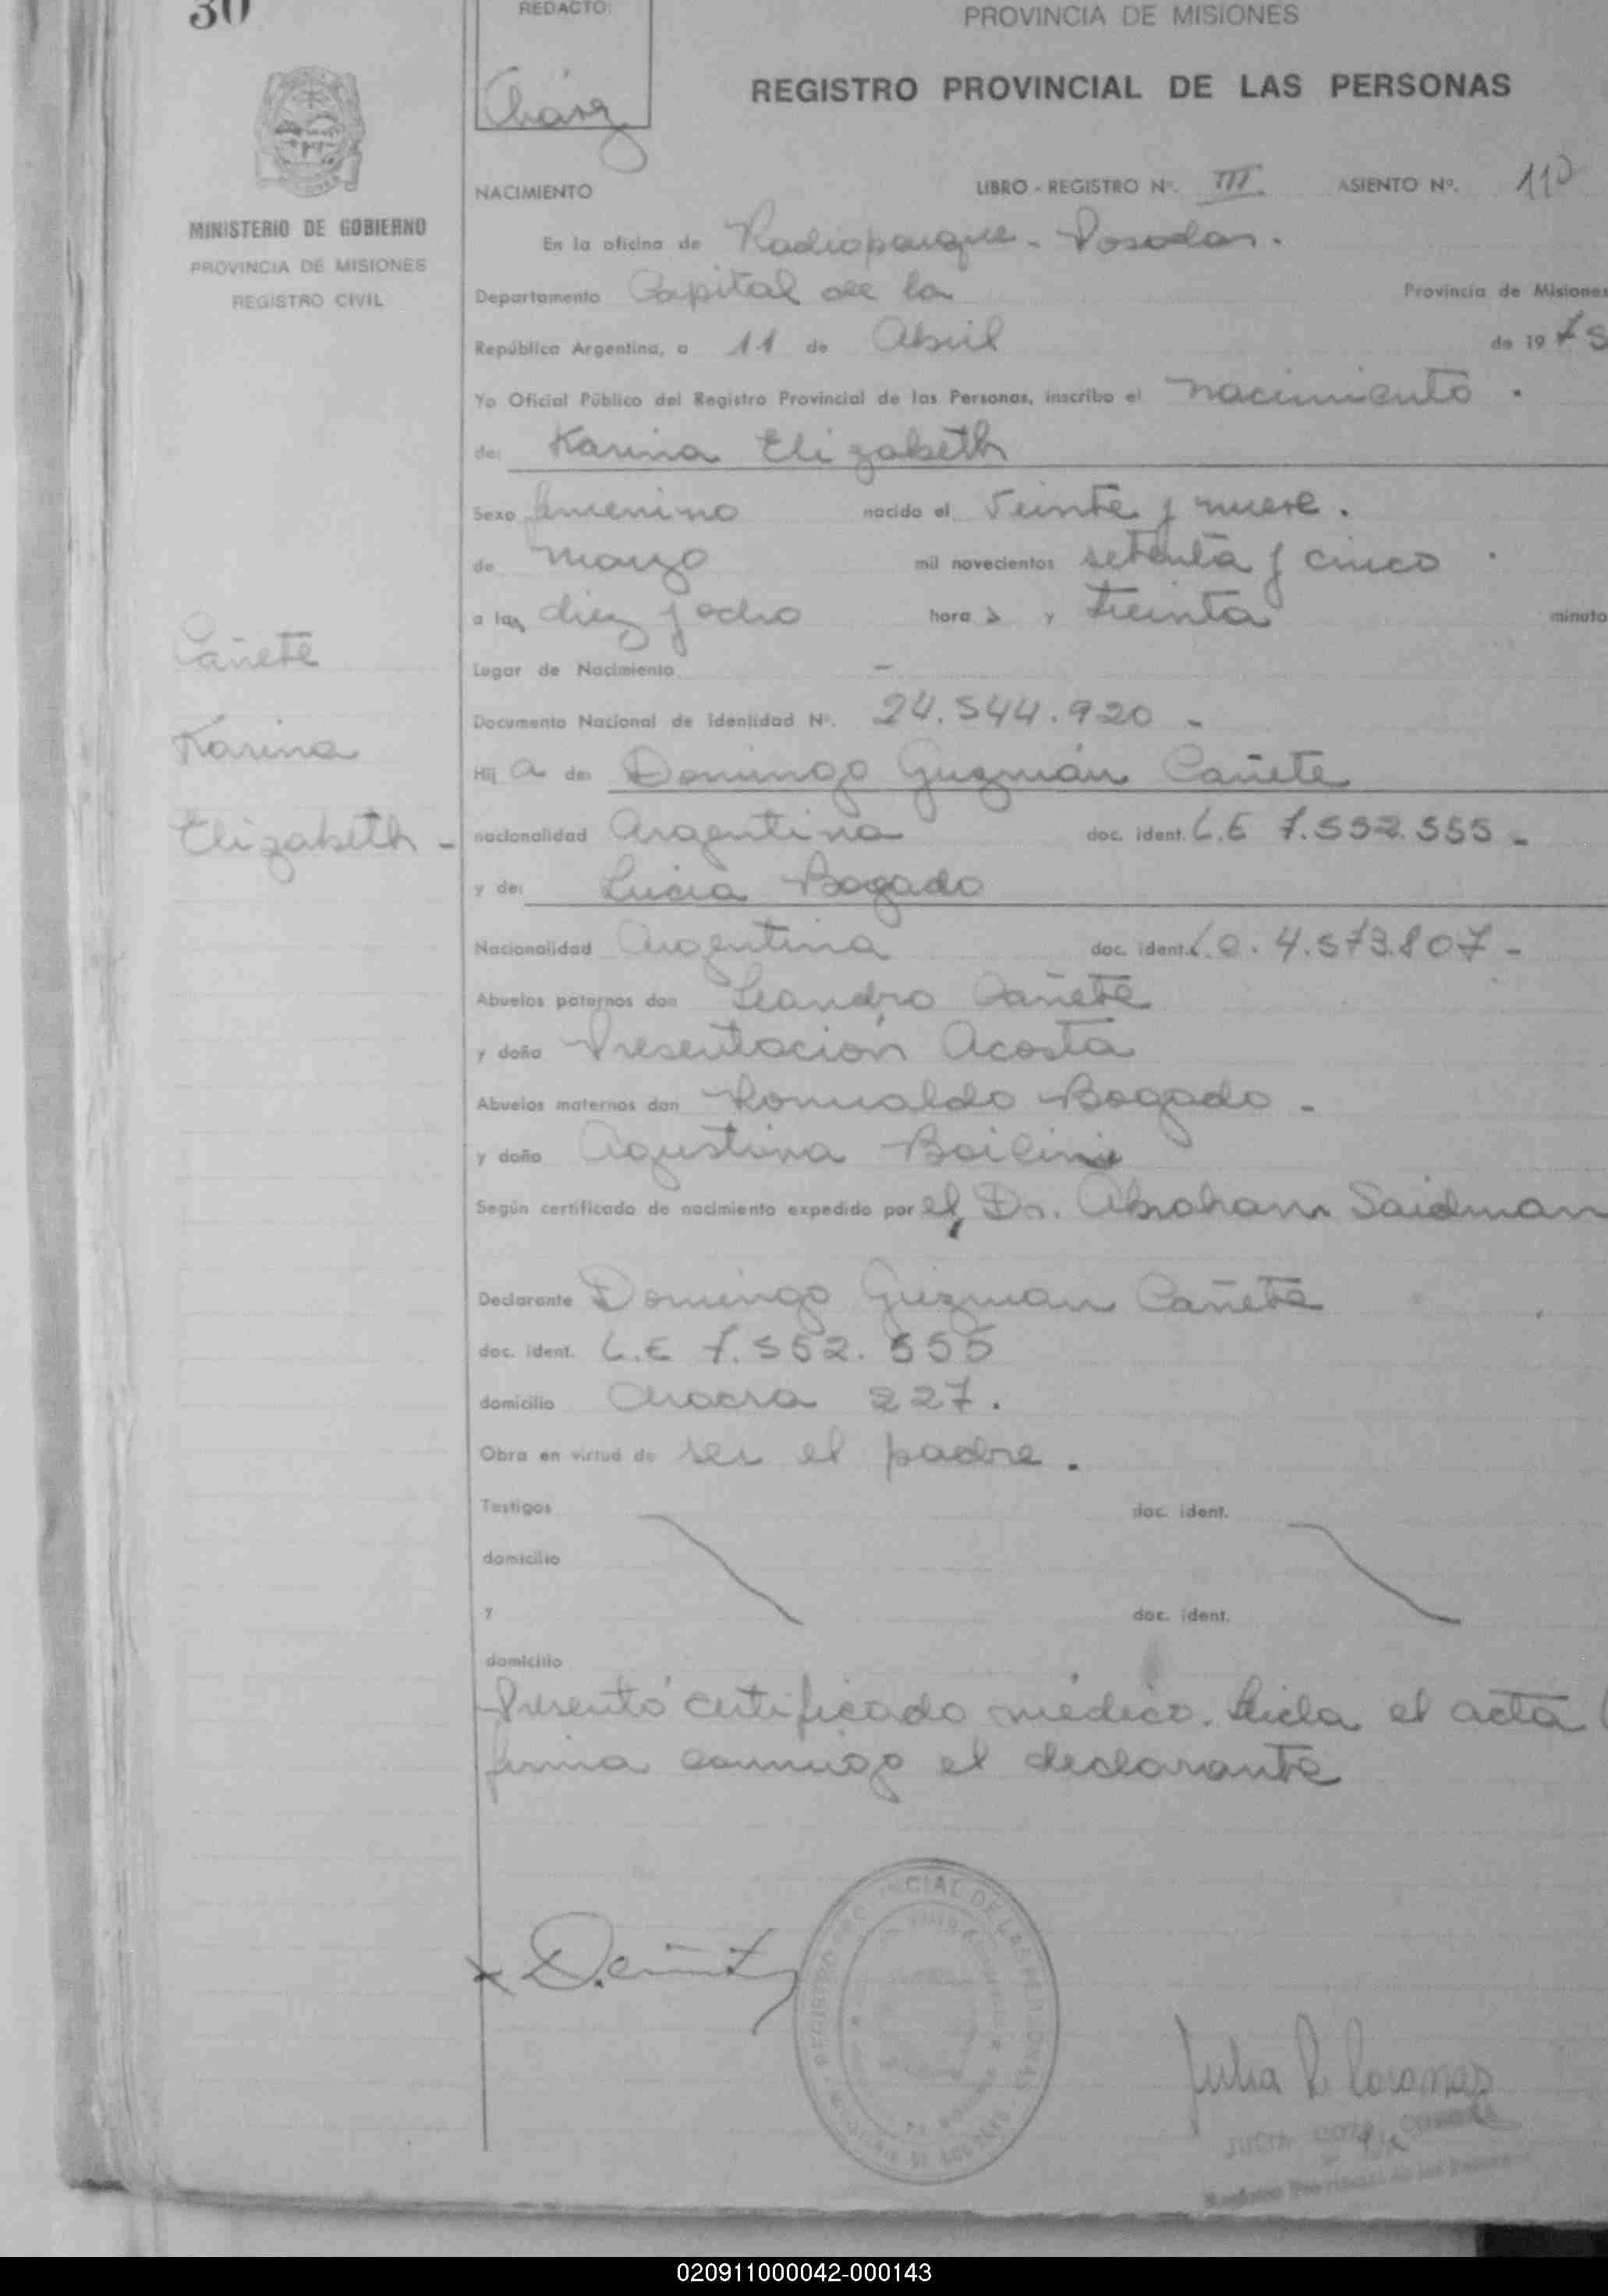 30
REDACTO:
PROVINCIA DE MISIONES
REGISTRO PROVINCIAL DE LAS PERSONAS
NACIMIENTO
LIBRO - REGISTRO Nº. III ASIENTO Nº. 110
MINISTERIO DE GOBIERNO
PROVINCIA DE MISIONES
REGISTRO CIVIL
En la oficina de Radioparque - Posadas.
Departamento Capital de la Provincia de Misiones
República Argentina, a 11 de Abril de 1975
Yo Oficial Público del Registro Provincial de las Personas, inscribo el nacimiento.
de: Karina Elizabeth
Sexo femenino nacido el Veinte y nueve.
de marzo mil novecientos setenta y cinco
a las diez y ocho horas y treinta minuto
Lugar de Nacimiento -
Documento Nacional de Identidad Nº. 24.544.920 -
Cañete
Karina
Elizabeth -
Hija de: Domingo Guzmán Cañete
nacionalidad Argentina doc. ident. L.E 7.552.555 -
y de: Lucia Bogado
Nacionalidad Argentina doc. ident. L.C. 4.573.807 -
Abuelos paternos don Leandro Cañete
y doña Presentación Acosta
Abuelos maternos don Romualdo Bogado -
y doña Agustina
Según certificado de nacimiento expedido por el Dr. Abraham Saidman
Declarante Domingo Guzman Cañete
doc. ident. L.E 7.552.555
domicilio Chacra 227.
Obra en virtud de ser el padre.
Testigos doc. ident.
domicilio
y doc. ident.
domicilio
Presentó certificado médico. Leida el acta
firma conmigo el declarante
REGISTRO PROVINCIAL DE LAS PERSONAS
Julia
JULIA
Registro Provincial de las Personas
020911000042-000143